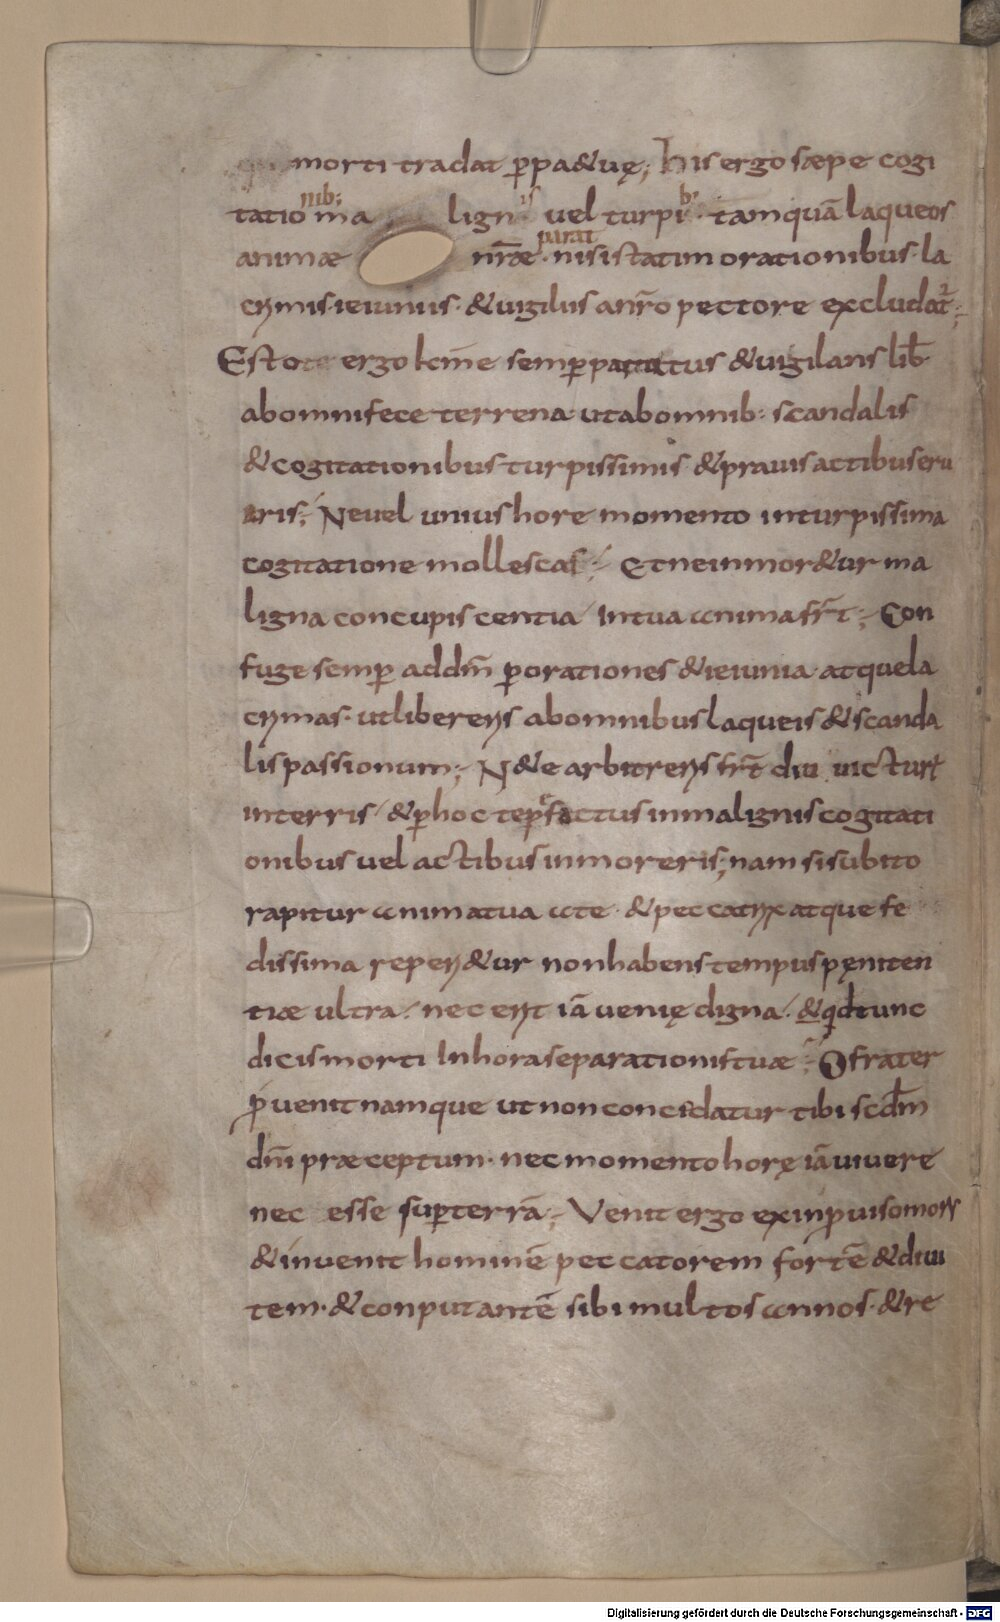 morti tradat ꝑpa&uę; His ergo sæpe cogi
tationib; malignis vel turpib; tamquā laqueos
animæ nr̄æ parat · nisi statim orationibus · la
crimis · ieiuniis · & uigiliis a nr̄o pectore excludat᷑;
Esto ergo kr̄me semꝑ paratus & uigilans lib̄
ab omni fece terrena · ut ab omnib; scandalis
& cogitationibus turpissimis · & prauis actibus eru
aris; Ne uel unius hore momento in turpissima
cogitatione mollescas; Et ne inmor&ur ma
ligna concupiscentia / in tua anima fr̄t; Con
fuge semꝑ ad dn̄m ꝑ orationes & ieiunia · atque la
crimas · ut libereris ab omnibus laqueis & scanda
lis passionum; N& e arbitreris fr̄t diu uictur᷑
in terris / & ꝑ hoc tepefactus in malignis cogitati
onibus vel actibus inmoreris; nam si subito
rapitur anima tua a te · & peccatrix atque fe
dissima reperi&ur non habens tempus pęniten
tiæ ultra / nec erit iā venię digna / & qd tunc
dicis morti in hora separationis tuæ; O frater
p̄uenit namque ut non concedatur tibi scd̄m
dn̄i præceptum · nec momento horę iā vivere
nec esse suꝑ terrā; Venit ergo ex inꝓuiso mors
& invenit hominē peccatorem fortē & diui
tem · & conputantē sibi multos annos · & re
Digitalisierung gefördert durch die Deutsche Forschungsgemeinschaft - DFG